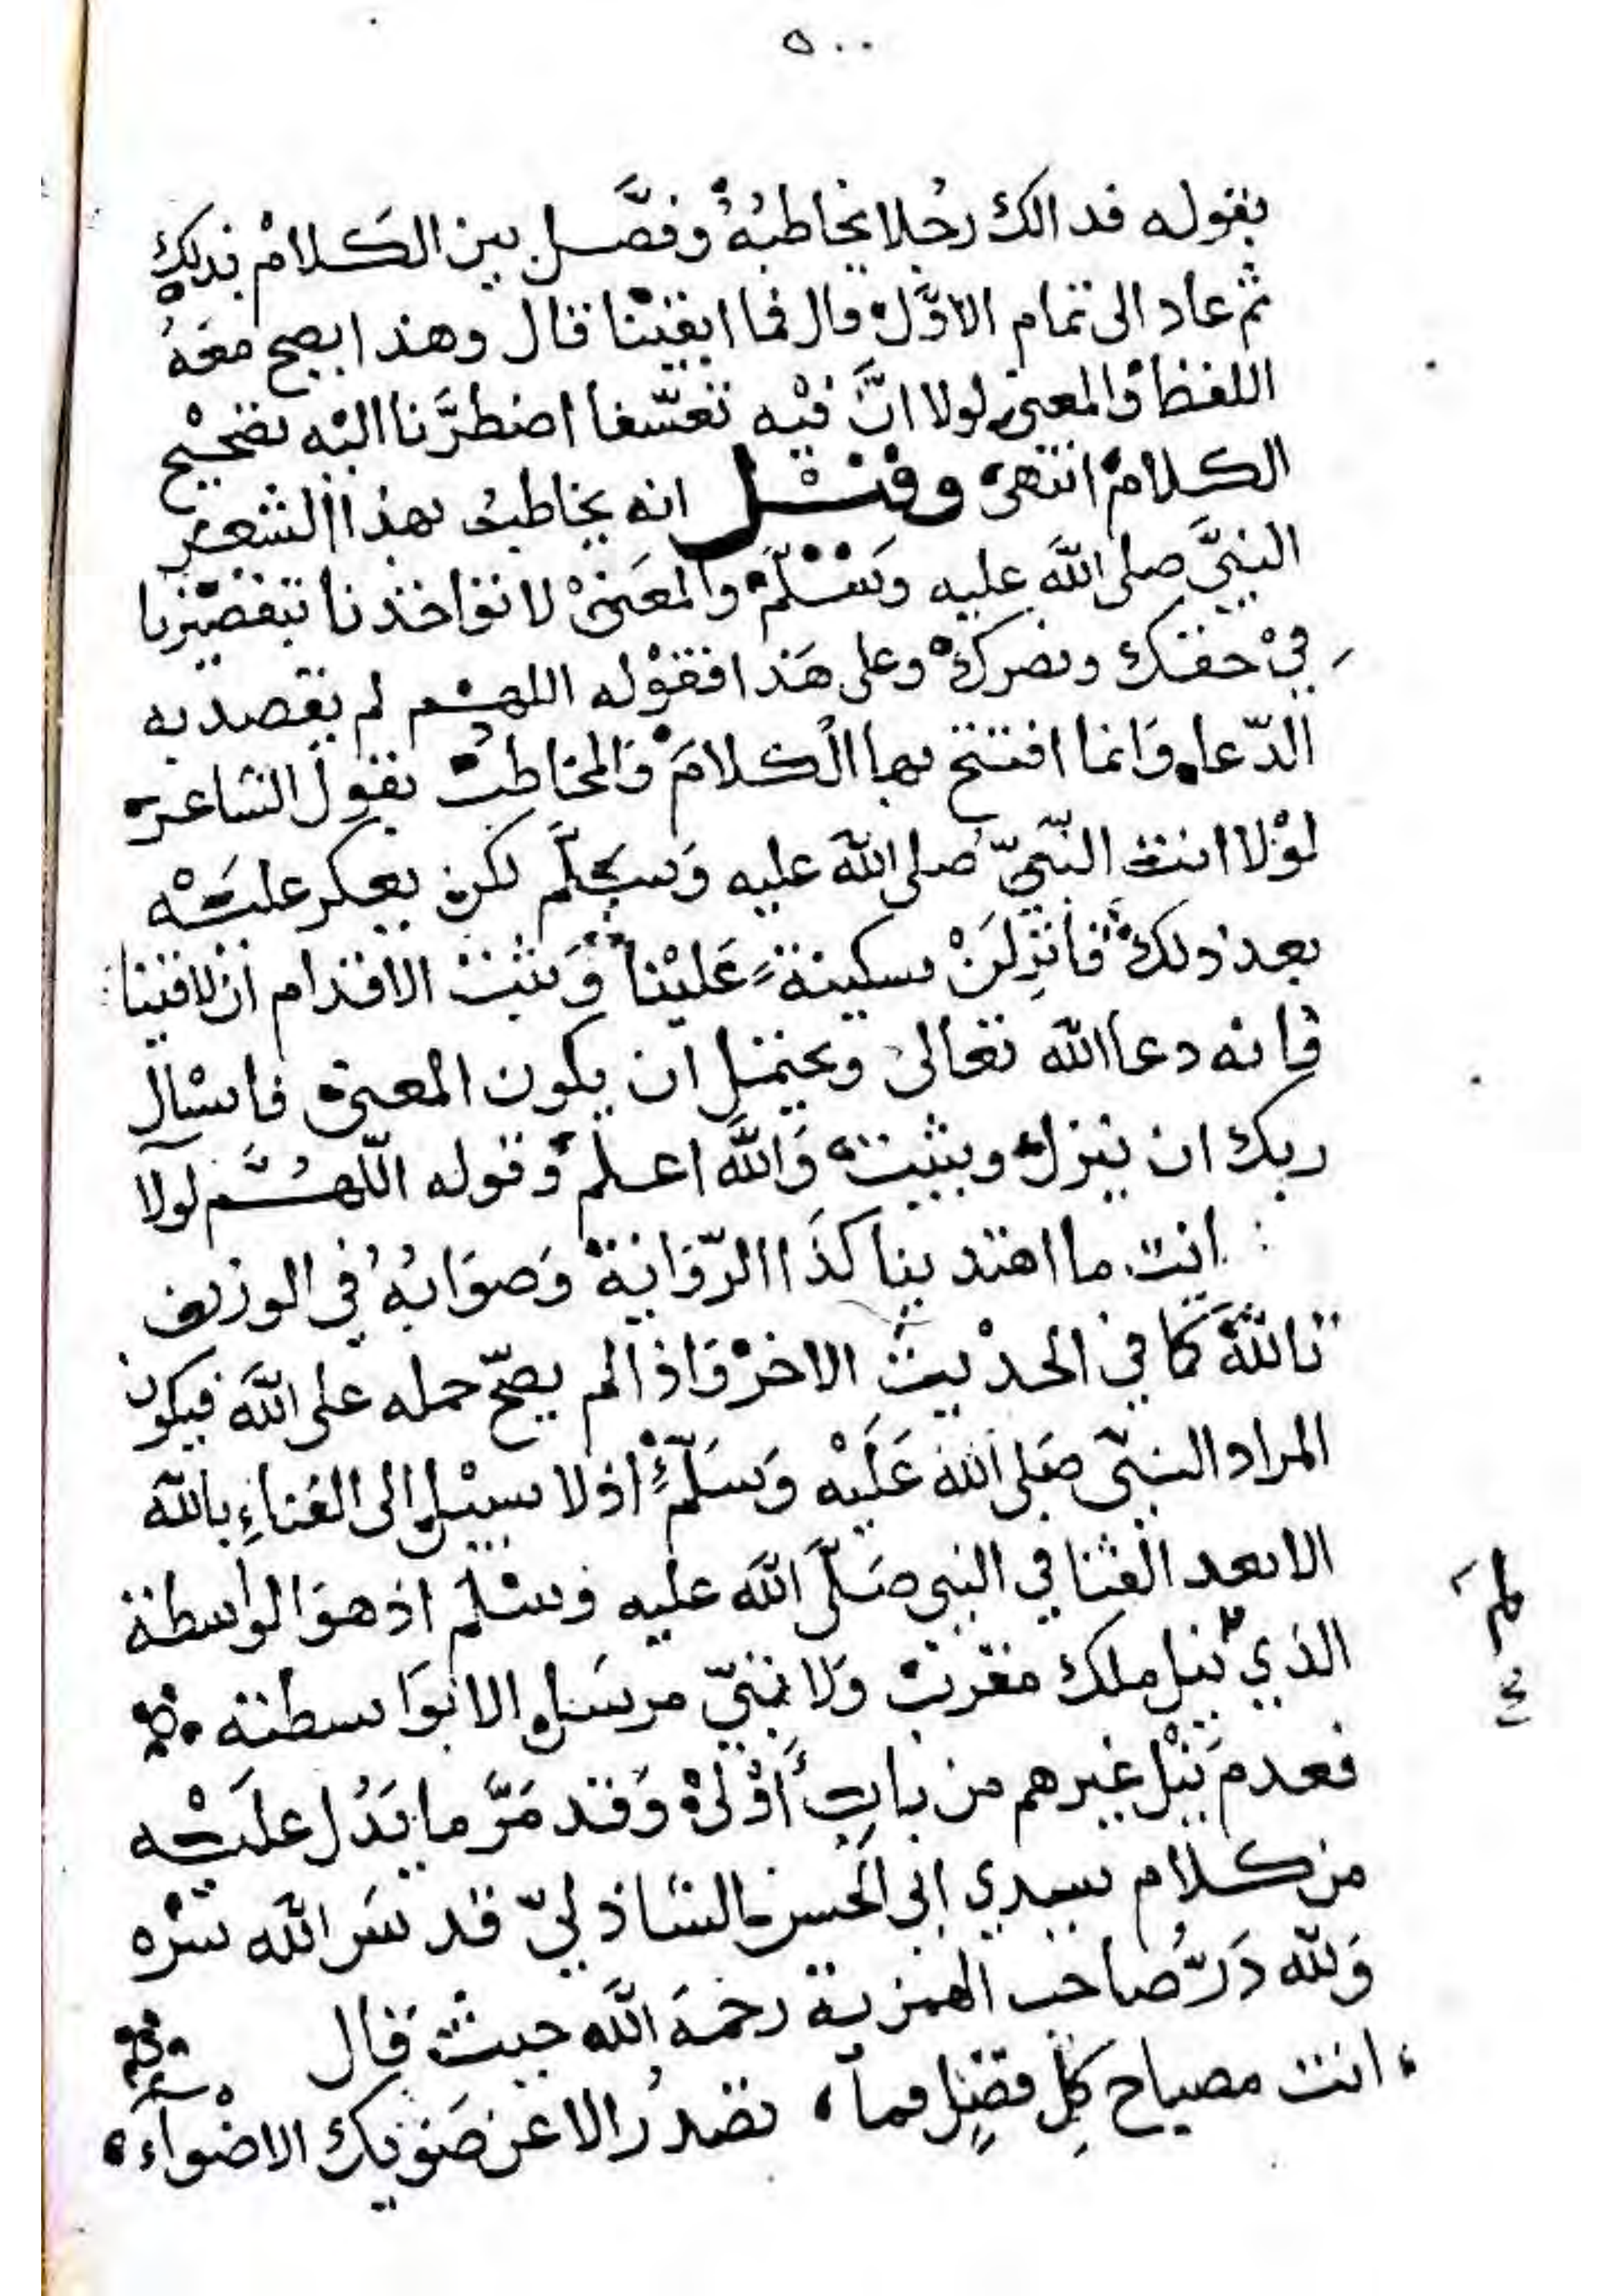 ٥٠٠
بقوله فدالك رجُلا يخاطبُهُ وفصَّل بين الكلام بذلك
ثم عاد الى تمام الاوَّل قال فما ابقيْنا قال وهذا يصح معَهُ
اللفظ والمعنى لولا انَّ فيْه تعسّفا اضطرَّنا اليْه تصحيْح
الكلام انتهى وقيْل انه يخاطب بهذا الشعر
النبيَّ صلى اللَّه عليه وَسَلَّم والمعَنىْ لا تؤاخذنا بتقصيْرنا
فيْ حقك ونصرك وعلى هَذا فقوْله اللهم لم يقصد به
الدّعاء وَانما افتتح بها الكلامَ وَالمخاطب بقول الشاعر
لوْلا انت النّبيّ صلى اللَّه عليه وَسَلّم لكن يعكر عليْه
بعد ذلك فأنْزِلَنْ سكينةً عَليْنا وَثبت الاقدام ان لاقينا
فانه دعا اللَّه تعالى ويحتمل ان يكون المعنى فاسْأل
ربك ان ينزل ويثبت وَاللَّه اعلم وَقوله اللّهُمَّ لولا
انت ما اهتدينا كذَا الرّوَاية وَصوَابُهُ في الوزن
تاللَّه كما في الحدْيث الاخر وَاذا لم يصحّ حمله على اللَّه فيكون
المراد النبيّ صَلى اللَّه عَلَيْه وَسَلَّم اذ لا سبيْل الى الفناءِ باللَّه
الا بعد الفنا في النبي صَلَّى اللَّه عليه وَسَلَّم اذ هوَ الواسطة
الذي لم ينل ملك مقرب وَلا نبيّ مرسَل الا بوَاسطته
فعدم نَيْل غيرهم من باب أوْلىْ وَقد مَرَّ ما يَدُل عليْه
من كلام سيدي ابي الحَسن الشاذليّ قدسَ اللَّه سرّه
وَللَّه دَرُّ صاحب الهمزية رحمَهُ اللَّه حيث قال
انت مصباح كلِ فضلٍ فما ، تصدرُ الا عن ضوئك الاضْواءُ ،